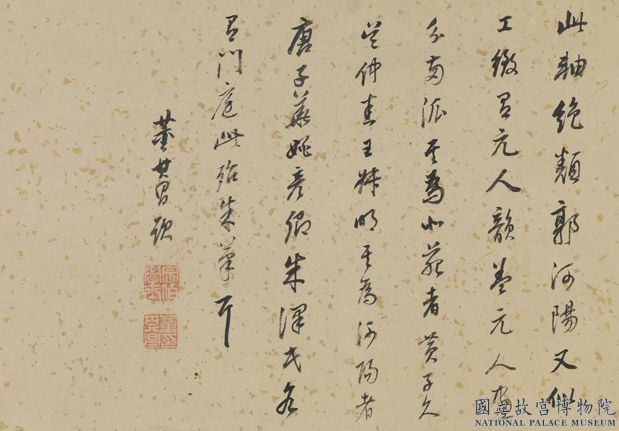 此軸絕類郭河陽又似
工緻有元人韻蓋元人畫
分兩派其為北苑者黃子久
吳仲圭王叔明其為河陽者
唐子華姚彥卿朱澤民各
有門庭此殆朱筆耳
董其昌題
宗伯學士
國立故宮博物院
NATIONAL PALACE MUSEUM